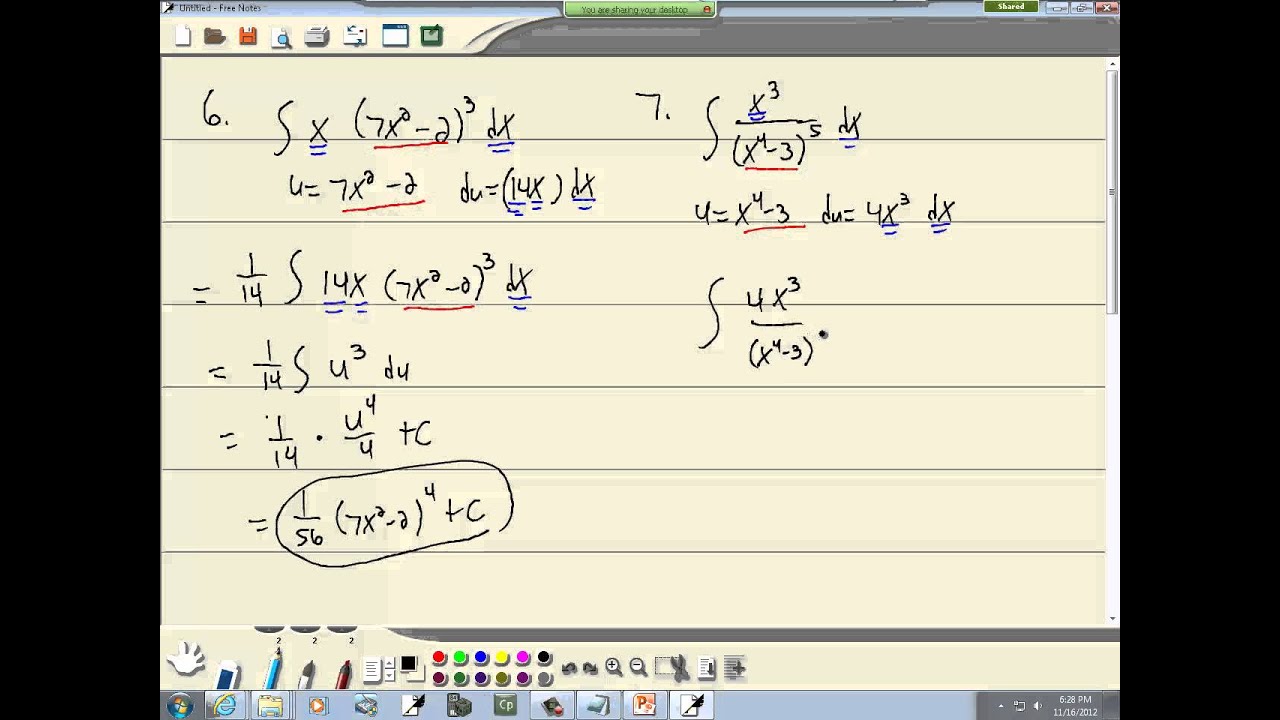 Untitled - Free Notes
You are sharing your desktop
Shared
6. ∫ x (7x² - 2)³ dx
u = 7x² - 2 du = (14x) dx
= 1/14 ∫ 14x (7x² - 2)³ dx
= 1/14 ∫ u³ du
= 1/14 · u⁴/4 + C
= 1/56 (7x² - 2)⁴ + C
7. ∫ x³/(x⁴ - 3)⁵ dx
u = x⁴ - 3 du = 4x³ dx
∫ 4x³/(x⁴ - 3)
2 2 2
Cp
6:28 PM
11/16/2012